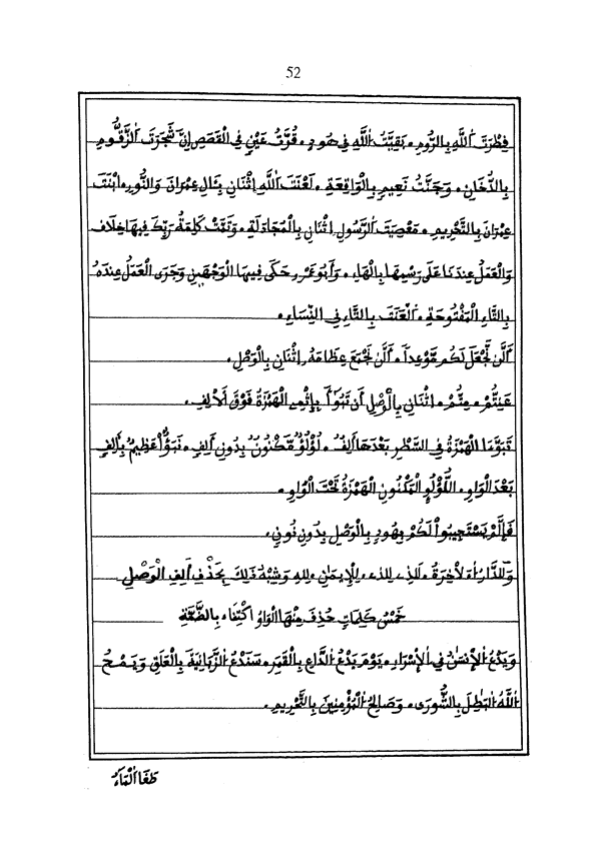 52
فِطْرَتَ اَ۬للَّهِ بِالرُّومِ. بَقِيَّتُ اُ۬للَّهِ فِي هُودٍ. قُرَّتُ عَيْنٍ فِي الْقَصَصِ إِنَّ شَجَرَتَ اَ۬لزَّقُّومِ
بِالدُّخَانِ. وَجَنَّتُ نَعِيمٍ بِالْوَاقِعَةِ. لَعْنَتَ اَ۬للَّهِ اِثْنَانِ بِئَالِ عِمْرَانَ وَالنُّورِ. ابْنَتَ
عِمْرَانَ بِالتَّحْرِيمِ. مَعْصِيَتِ اِ۬لرَّسُولِ اِثْنَانِ بِالْمُجَادَلَةِ. وَتَمَّتْ كَلِمَتُ رَبِّكَ فِيهَا خِلَافٌ
وَالْعَمَلُ عِنْدَنَا عَلَى رَسْمِهَا بِالْهَاءِ. وَأَبُو عَمْرٍو حَكَى فِيهَا الْوَجْهَيْنِ وَجَرَى الْعَمَلُ عِنْدَهُ
بِالتَّاءِ الْمَفْتُوحَةِ. اَ۬لْعَنَتَ بِالتَّاءِ فِي النِّسَاءِ.
أَلَّن نَّجْعَلَ لَكُم مَّوْعِداً. أَلَّن نَّجْمَعَ عِظَامَهُ. اِثْنَانِ بِالْوَصْلِ.
عَنِتُّمْ. مِتُّمْ. اِثْنَانِ بِالْوَصْلِ أَن تَبُوَّأَ بِإِثْمِي الْهَمْزَةُ فَوْقَ الْأَلِفِ.
تَبَوَّءَا الْهَمْزَةُ فِي السَّطْرِ بَعْدَهَا أَلِفٌ. لُؤْلُؤٌ مَّكْنُونٌ بِدُونِ أَلِفٍ. نَبَؤٌاْ عَظِيمٌ بِأَلِفٍ
بَعْدَ الْوَاوِ. اللُّؤْلُؤِ الْمَكْنُونِ الْهَمْزَةُ تَحْتَ الْوَاوِ.
فَإِلَّمْ يَسْتَجِيبُواْ لَكُمْ بِهُودٍ بِالْوَصْلِ بِدُونِ نُونٍ.
وَلَلدَّارُ اُ۬لَاخِرَةُ. لَلذِے. لِلذِے. لِلِايمَٰنِ. لِلهِ وَشِبْهُ ذَلِكَ بِحَذْفِ أَلِفِ الْوَصْلِ
خَمْسُ كَلِمَاتٍ حُذِفَ مِنْهَا الْوَاوُ اكْتِفَاءً بِالضَّمَّةِ
وَيَدْعُ اُ۬لْإِنسَٰنُ فِي الْإِسْرَاءِ. يَوْمَ يَدْعُ اُ۬لدَّاعِ بِالْقَمَرِ. سَنَدْعُ اُ۬لزَّبَانِيَةَ بِالْعَلَقِ وَيَمْحُ
اُ۬للَّهُ اُ۬لْبَٰطِلَ بِالشُّورَى. وَصَالِحُ الْمُؤْمِنِينَ بِالتَّحْرِيمِ.
طَغَا اَ۬لْمَآءُ